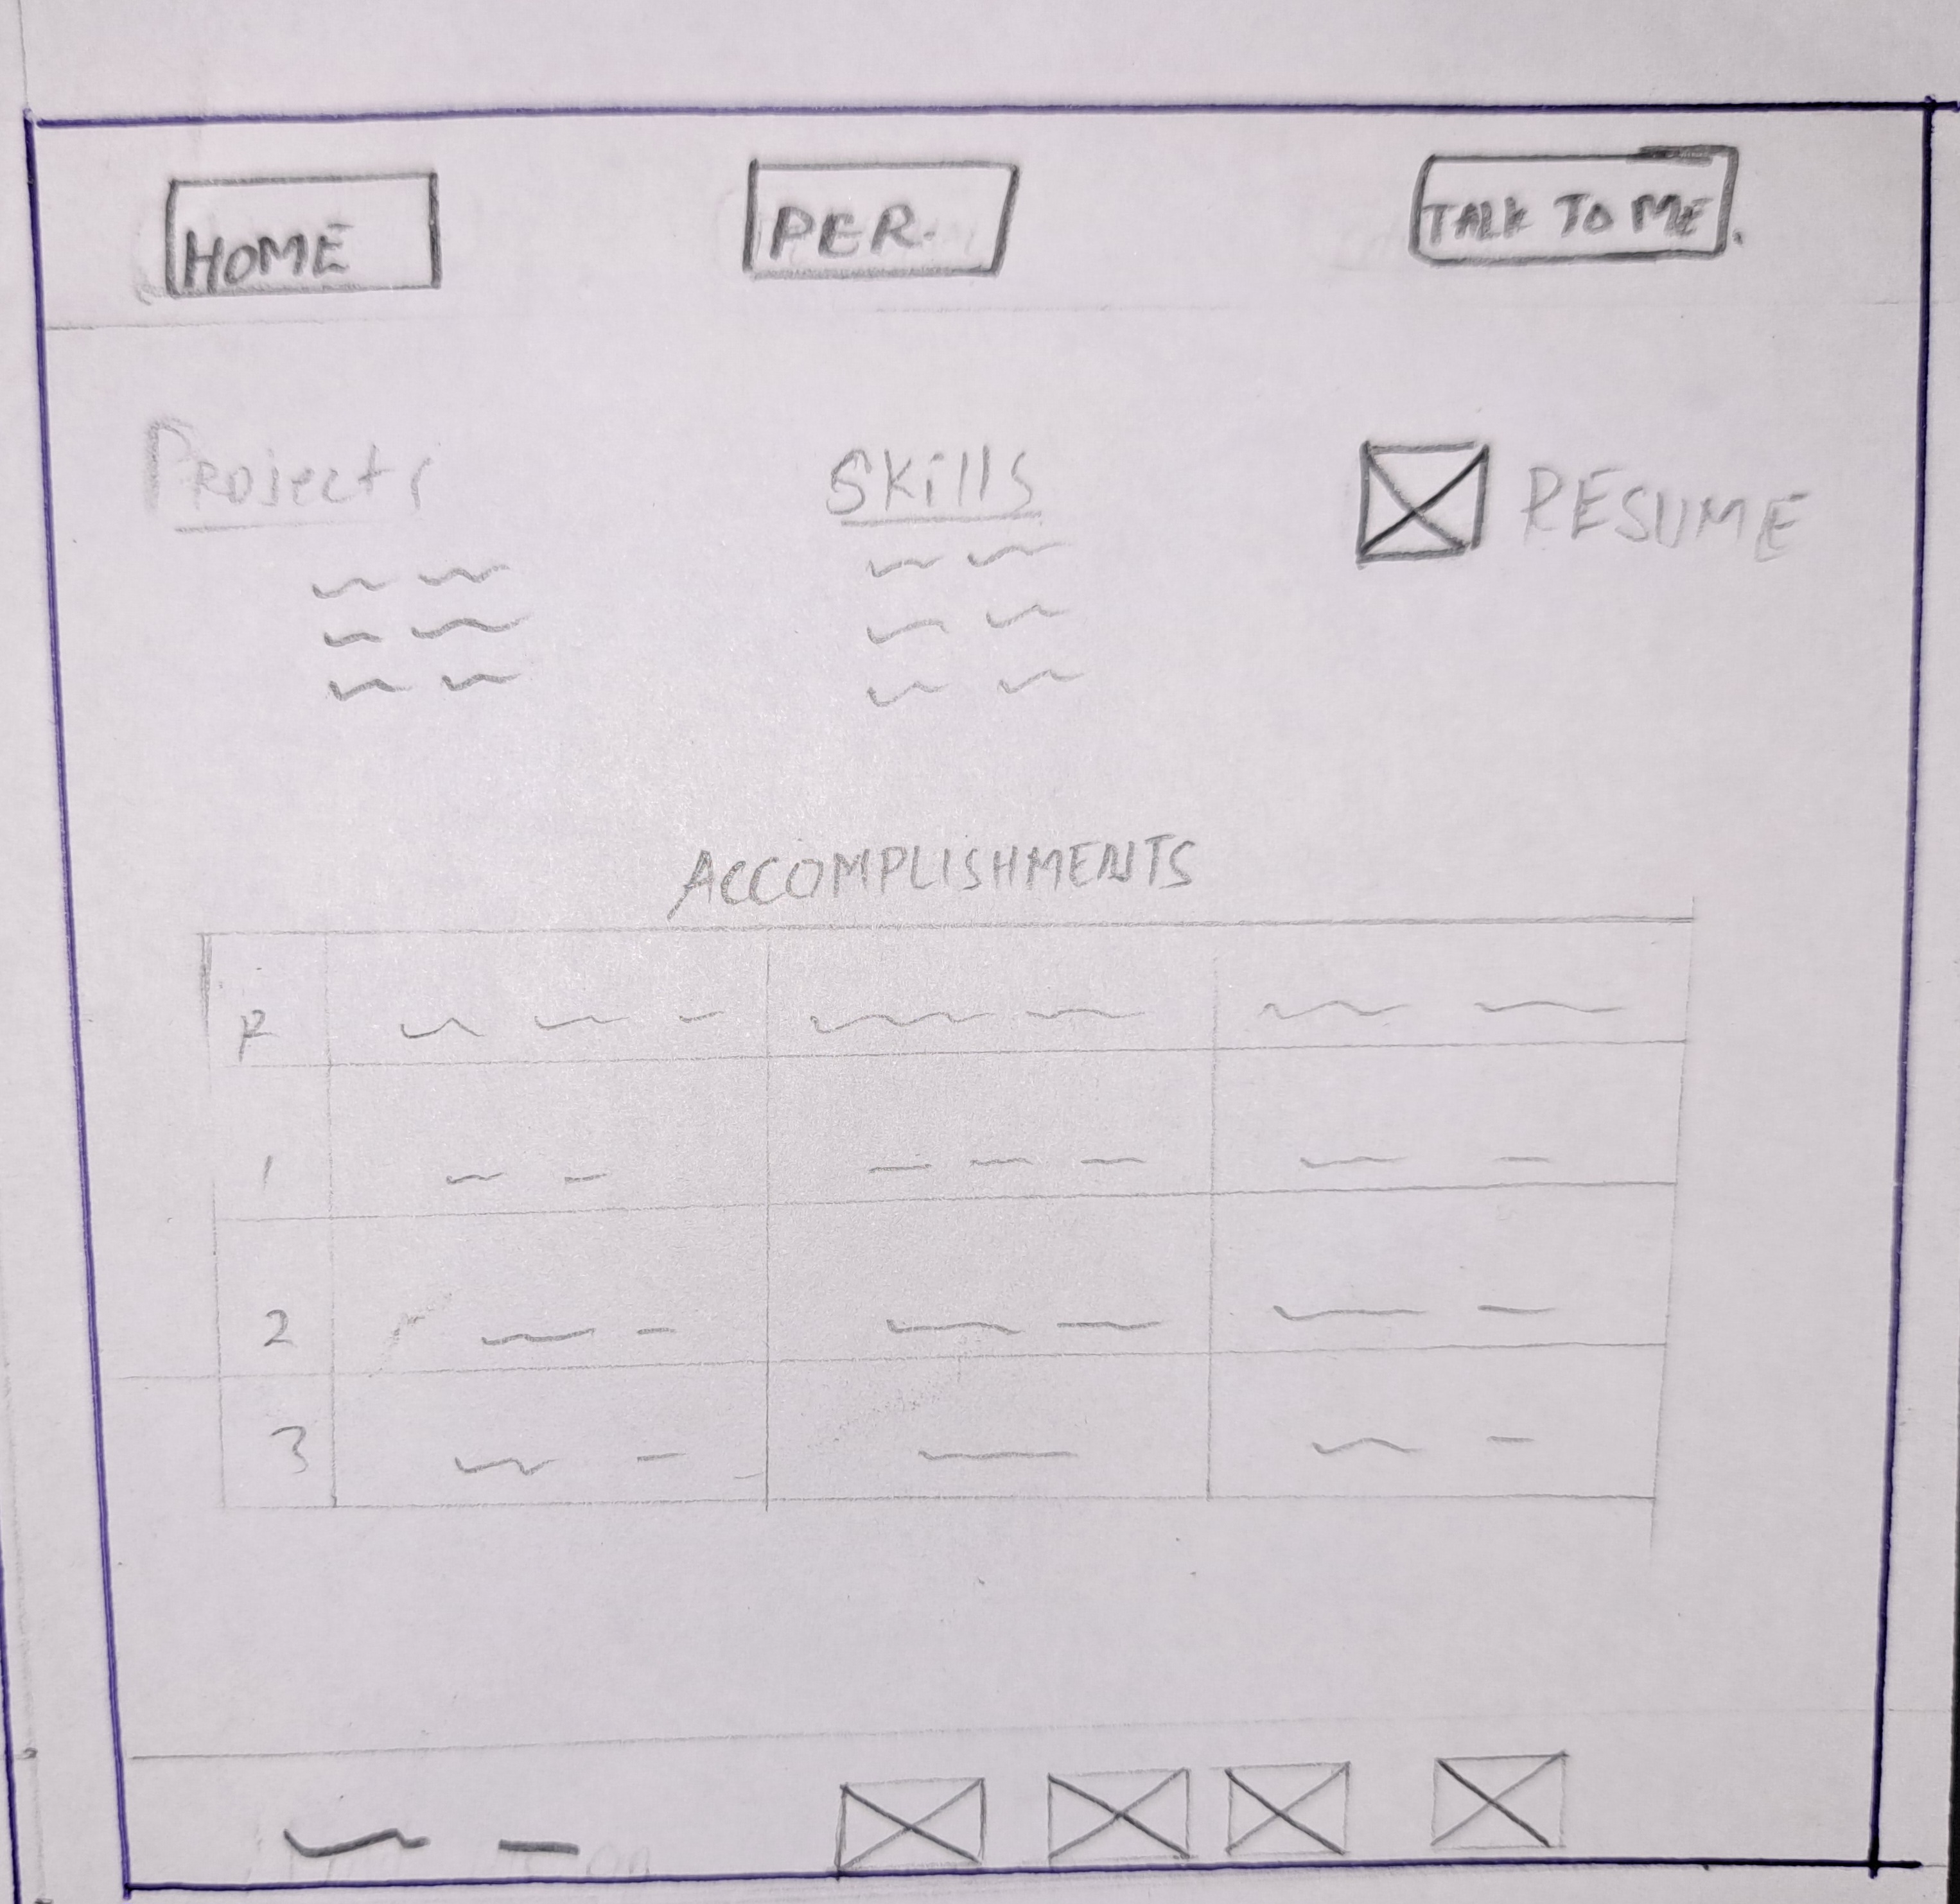 HOME PER. TALK TO ME.
Projects Skills RESUME
ACCOMPLISHMENTS
1
2
3